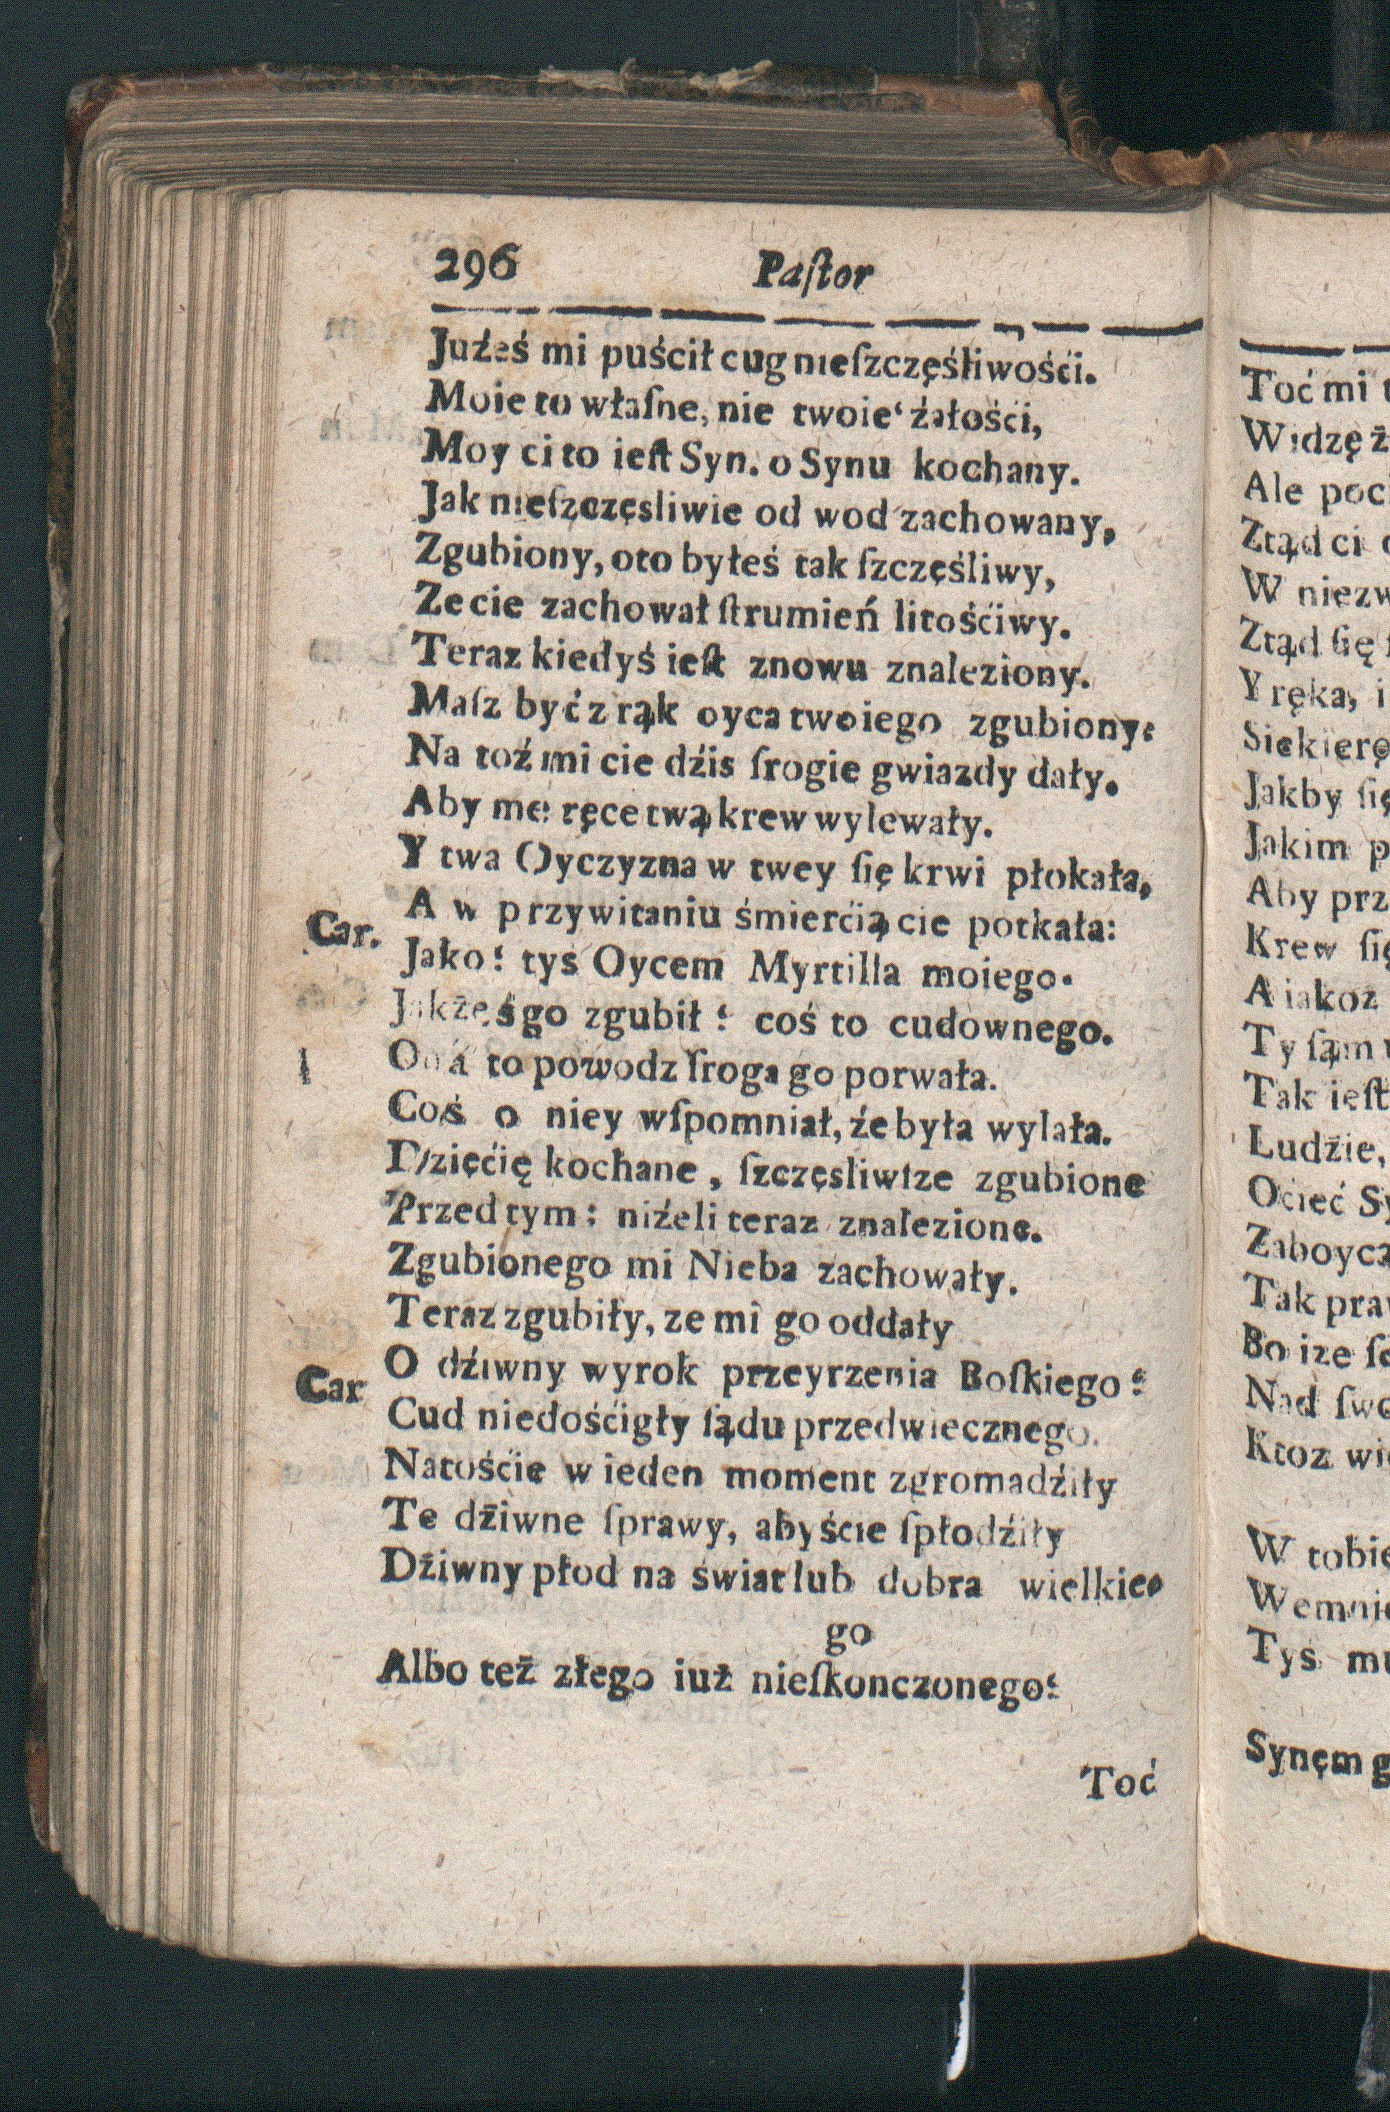 296 Paſtor
Juźeś mi puścił cug nieſzczęśliwośći.
Moie to właſne, nie twoie źałości,
Moy ci to ieſt Syn. o Synu kochany.
Jak nieſzczęsliwie od wod zachowany,
Zgubiony, oto byłeś tak ſzczęśliwy,
Ze cie zachował ſtrumień litośćiwy.
Teraz kiedyś ieſt znowu znaleziony.
Maſz być z rąk oyca twoiego zgubiony.
Na toź mi cie dźis ſrogie gwiazdy dały.
Aby me ręce twą krew wylewały.
Y twa Oyczyzna w twey ſię krwi płokała,
A w przywitaniu śmierćią cie potkała:
Car. Jako? tys Oycem Myrtilla moiego.
Jakżeś go zgubił? coś to cudownego.
Ona to powodz ſroga go porwała.
Coś o niey wſpomniał, źe była wylała.
Dzięćię kochane, ſzczęsliwſze zgubione
Przed tym: niźeli teraz znalezione.
Zgubionego mi Nieba zachowały.
Teraz zgubiły, ze mi go oddały
Car O dźiwny wyrok przeyrzenia Boſkiego?
Cud niedośćigły ſądu przedwiecznego.
Natośćie w ieden moment zgromadźiły
Te dźiwne ſprawy, abyście ſpłodźiły
Dźiwny płod na świat lub dobra wielkie-
go
Albo też złego iuż nieſkonczonego?
Toć
Toć mi
Widzę
Ale
Ztąd ci
W
Ztąd ſię
Y ręka,
Siekierę
Jakby
Jakim
Aby
Krew
A iakoz
Ty ſąm
Tak ieſt
Ludźie,
Ociec
Tak
Bo ize
Nad
Ktoz
W
Tys
Synęm